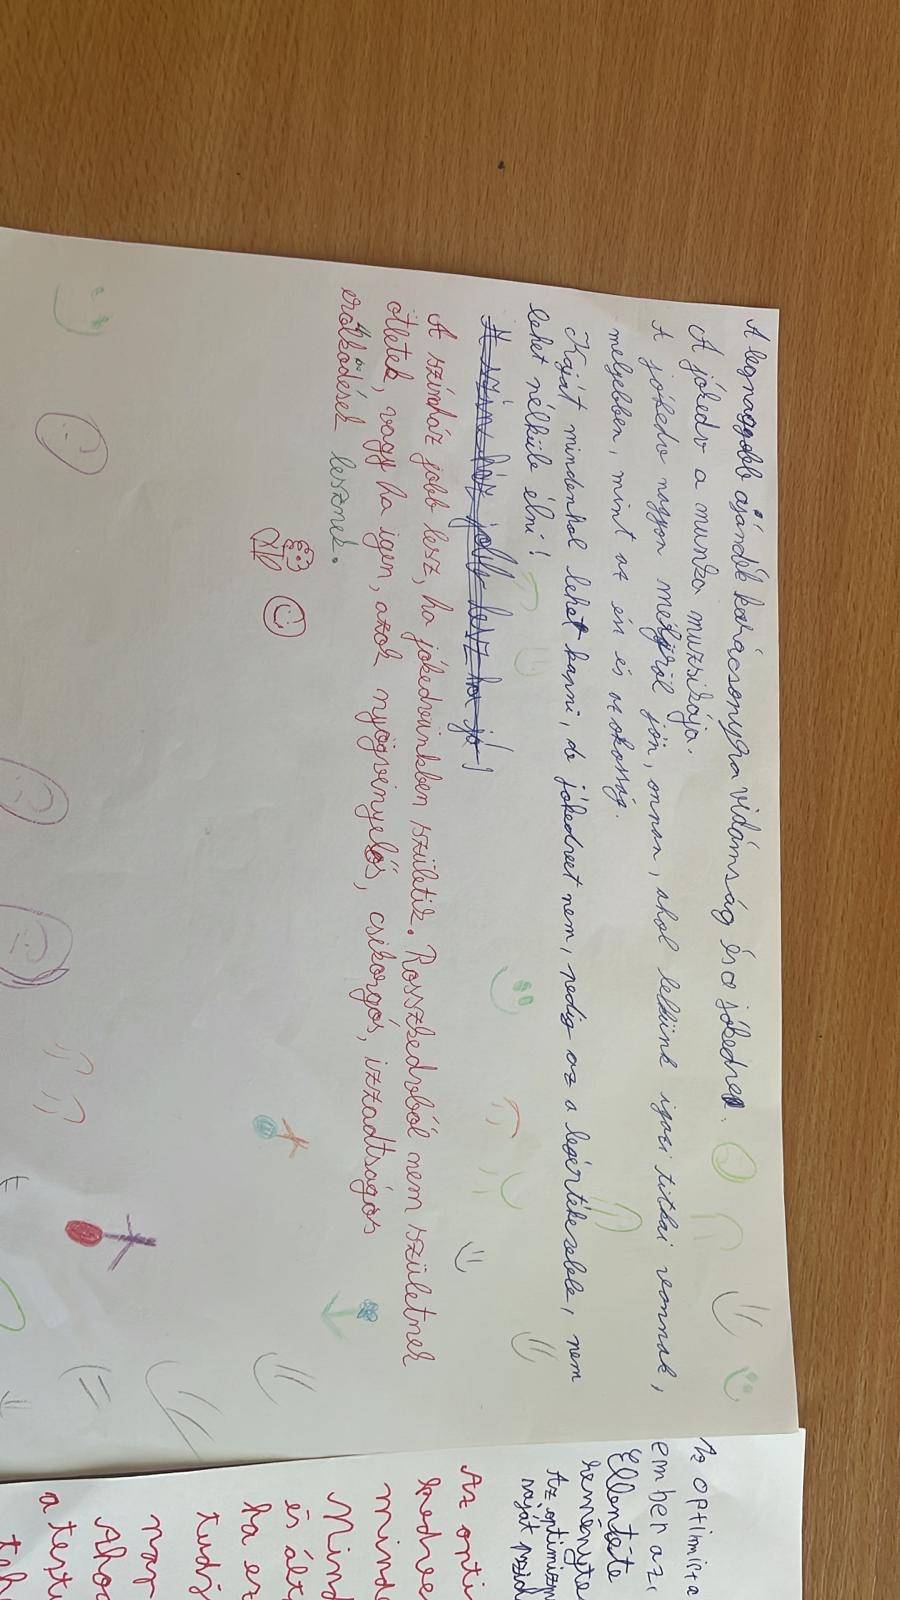 A legnagyobb ajándék karácsonyra vidámság és a jókedv.
A jókedv a munka muzsikája.
A jókedv nagyon mélyről jön, onnan, ahol lelkünk igazi titkai vannak,
mélyebben, mint az én és az okosság.
Kaját mindenhol lehet kapni, de jókedvet nem, pedig az a legértékesebb, nem
lehet nélküle élni!
A színház jobb lesz ha jó!
A színház jobb lesz, ha jókedvünkben születik. Rosszkedvből nem születnek
ötletek, vagy ha igen, azok nyögvenyelős, csikorgós, izzadtságos
erőlködések lesznek.
Az optimista
ember az
Ellentéte
reményte
Az optimizm
saját
Az opti
kedve
mind
Mind
és ált
ha ez
tudj
nap
Ahog
a testü